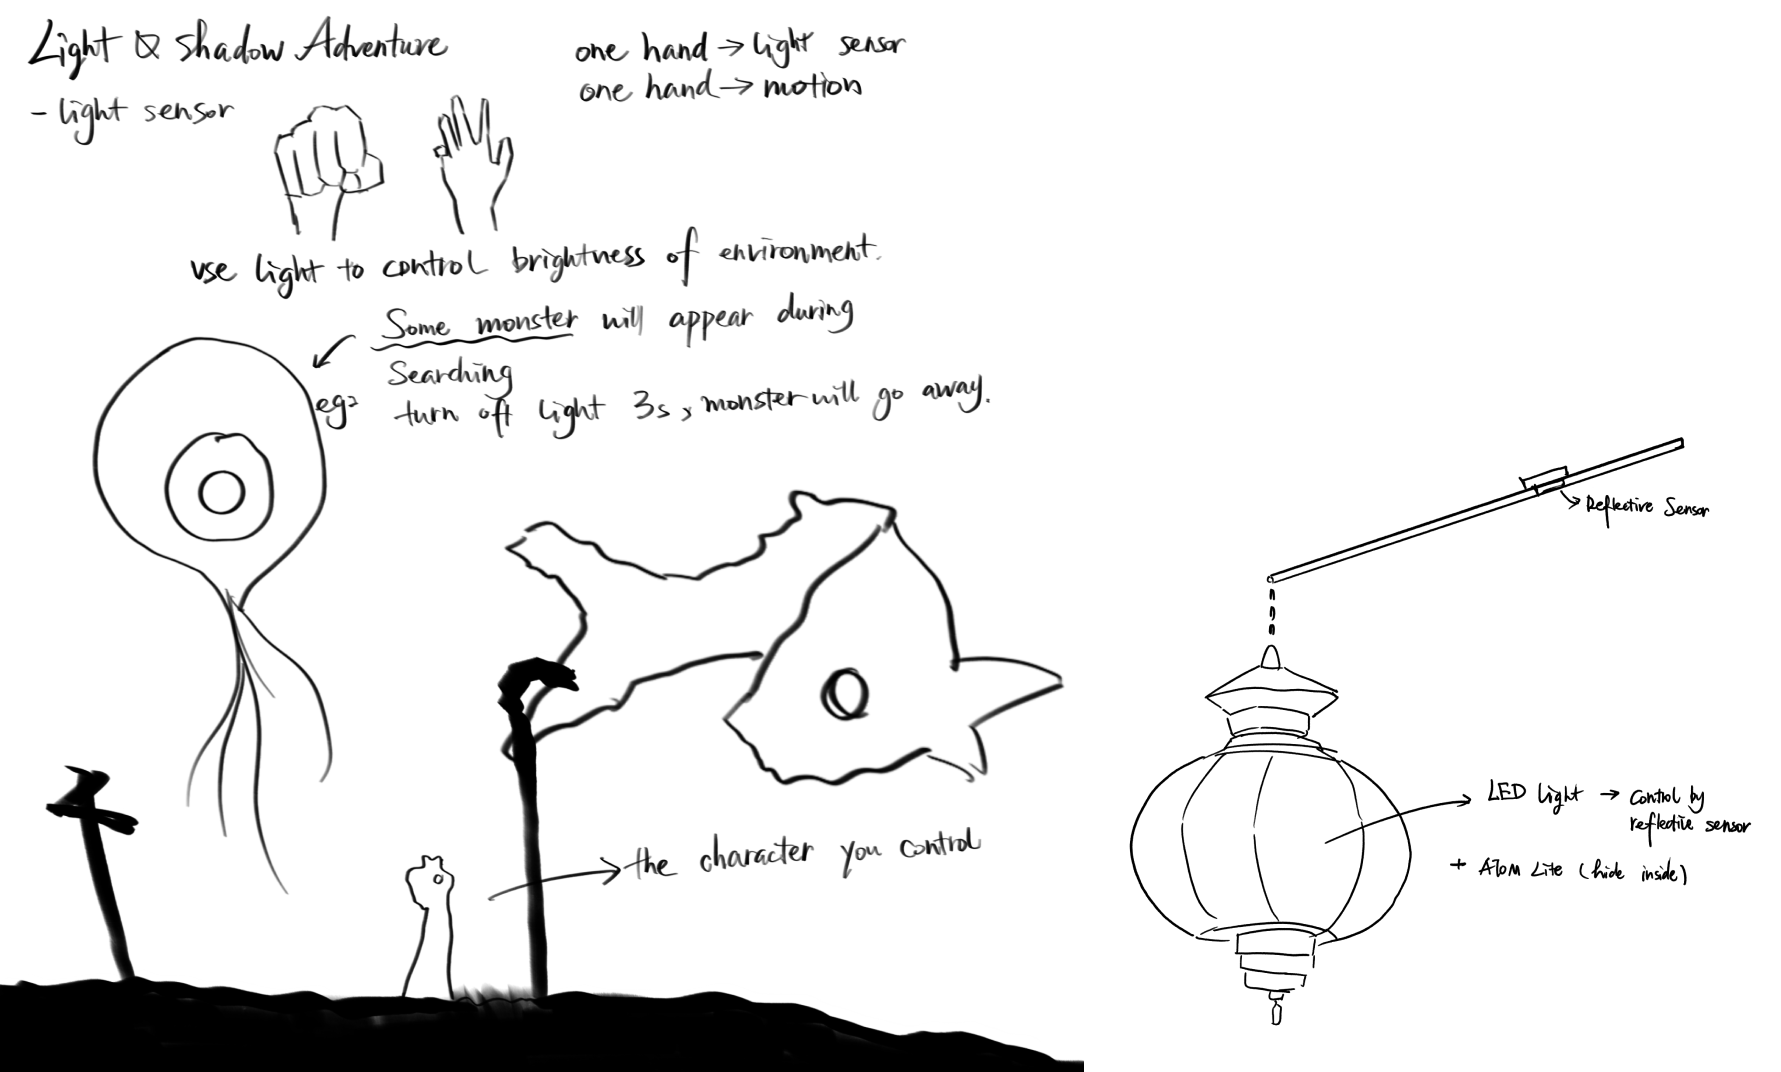 Light & Shadow Adventure
- light sensor
one hand → light sensor
one hand → motion
use light to control brightness of environment.
Some monster will appear during
Searching
eg: turn off light 3s, monster will go away.
the character you control
Reflective Sensor
LED light → control by
reflective sensor
+ Atom Lite (hide inside)